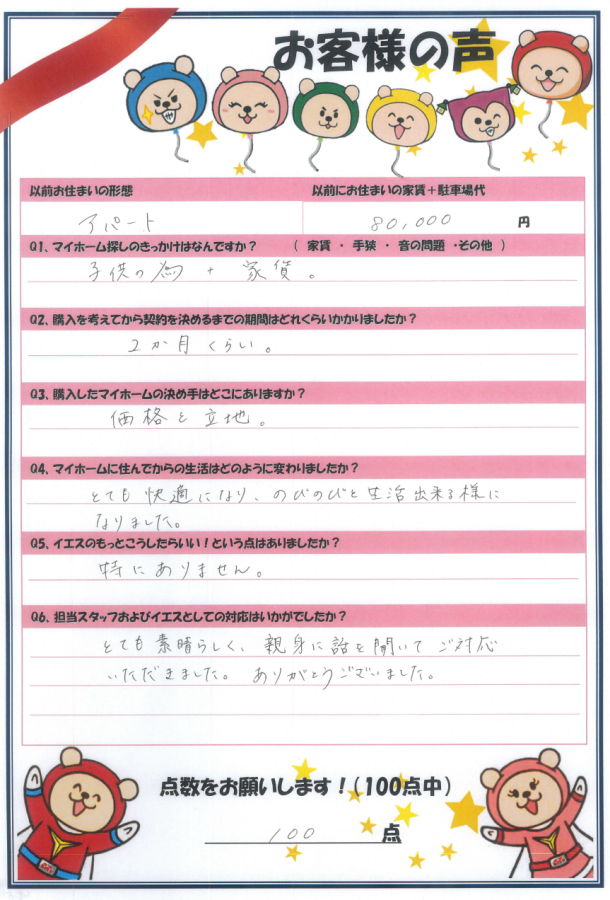 お客様の声
以前お住まいの形態 以前にお住まいの家賃+駐車場代
アパート 80,000 円
Q1、マイホーム探しのきっかけはなんですか? ( 家賃 ・ 手狭 ・ 音の問題 ・その他 )
子供の為 + 家賃。
Q2、購入を考えてから契約を決めるまでの期間はどれくらいかかりましたか?
2か月くらい。
Q3、購入したマイホームの決め手はどこにありますか?
価格と立地。
Q4、マイホームに住んでからの生活はどのように変わりましたか?
とても快適になり、のびのびと生活出来る様に
なりました。
Q5、イエスのもっとこうしたらいい!という点はありましたか?
特にありません。
Q6、担当スタッフおよびイエスとしての対応はいかがでしたか?
とても素晴らしく、親身に話を聞いてご対応
いただきました。ありがとうございました。
点数をお願いします!(100点中)
100 点